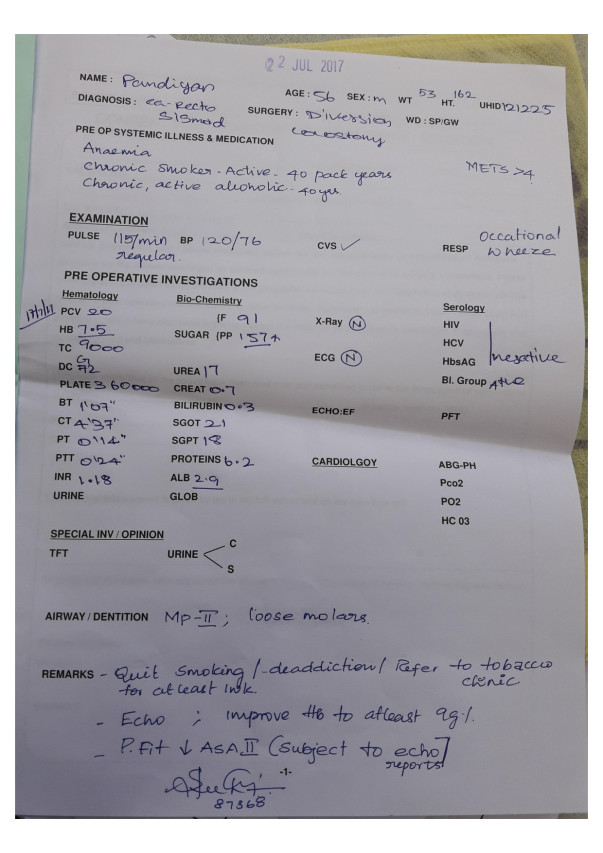 22 JUL 2017
NAME : Pandiyan AGE : 56 SEX : m WT 53 HT. 162 UHID 121225
DIAGNOSIS : ca-Recto Sigmod SURGERY : Diversion colostomy WD : SP/GW
PRE OP SYSTEMIC ILLNESS & MEDICATION
Anaemia
Chronic smoker - Active - 40 pack years METS >4
Chronic, active alcoholic - 40 yrs
EXAMINATION
PULSE 115/min regular BP 120/76 CVS ✓ RESP Occational wheeze
PRE OPERATIVE INVESTIGATIONS
Hematology Bio-Chemistry Serology
17/7/17 PCV 20 (F 91 X-Ray (N) HIV
HB 7.5 SUGAR (PP 157+ HCV negative
TC 9000 ECG (N) HbsAG
DC UREA 17 Bl. Group
PLATE 360000 CREAT 0.7
BT 1'07" BILIRUBIN 0.3 ECHO:EF PFT
CT 4'37" SGOT 21
PT 0'14" SGPT 18
PTT 0'24" PROTEINS 6.2 CARDIOLGOY ABG-PH
INR 1.18 ALB 2.9 Pco2
URINE GLOB PO2
HC 03
SPECIAL INV / OPINION
TFT URINE C
S
AIRWAY / DENTITION Mp-II ; loose molars.
REMARKS - Quit Smoking / deaddiction / Refer to tobacco clinic
for atleast
- Echo ; improve Hb to atleast 9g%.
- P. Fit ↓ ASA II (subject to echo reports]
-1-
87368